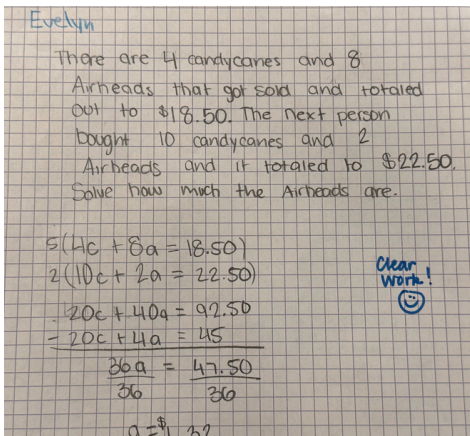 Evelyn
There are 4 candycanes and 8
Airheads that got sold and totaled
out to $18.50. The next person
bought 10 candycanes and 2
Airheads and it totaled to $22.50.
Solve how much the Airheads are.
5(4c + 8a = 18.50)
2(10c + 2a = 22.50)
Clear
work!
20c + 40a = 92.50
- 20c + 4a = 45
36a = 47.50
36 36
a = $1.32